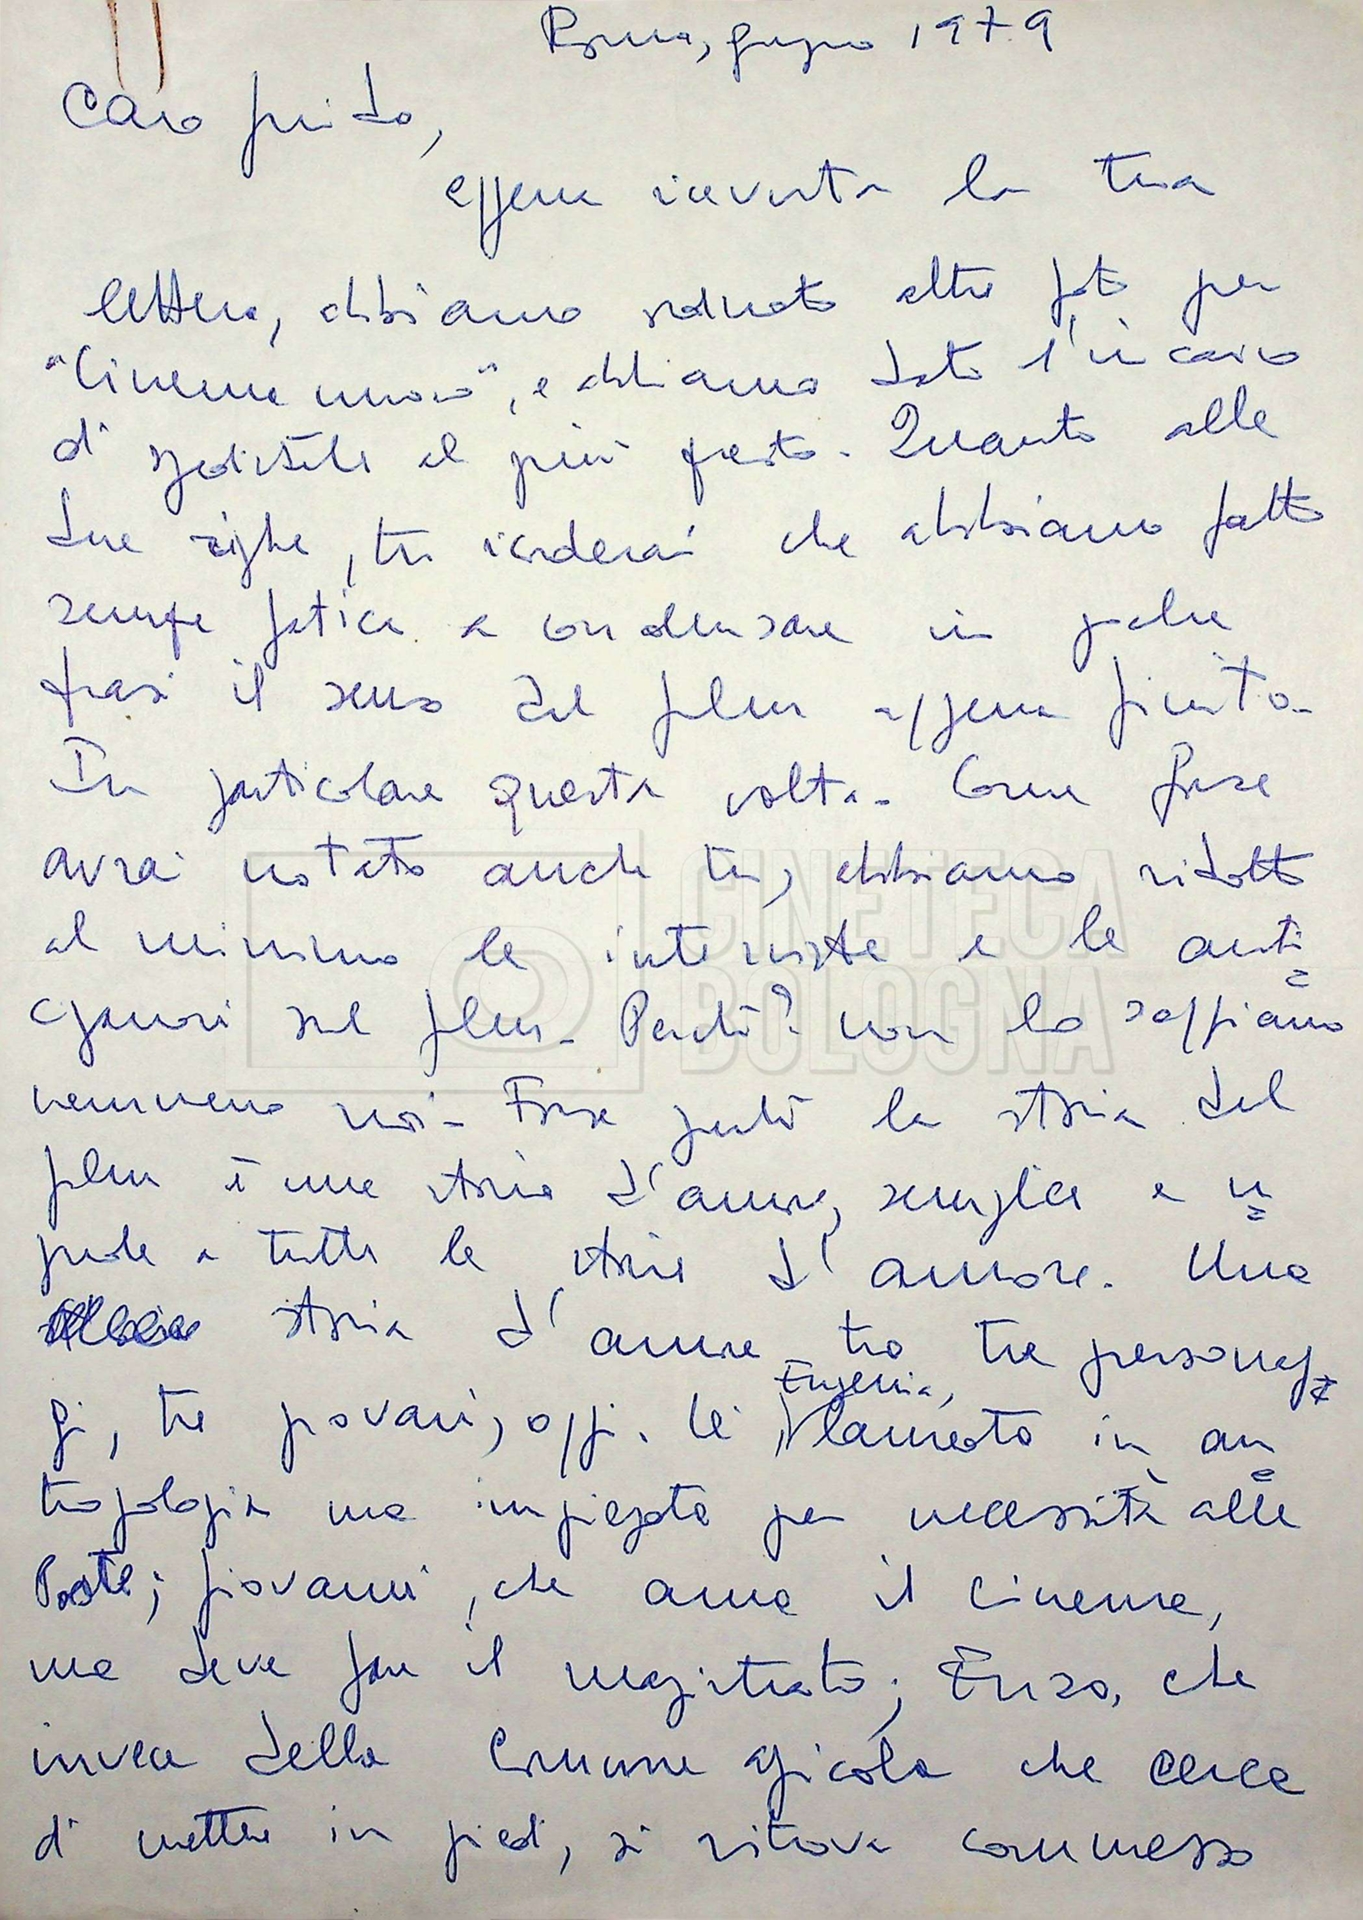 Roma, giugno 1979
Caro Guido,
appena ricevuta la tua
lettera, abbiamo radunato altre foto per
"Cinema nuovo", e abbiamo dato l'incarico
di spedirtele al più presto. Quanto alle
due righe, tu ricorderai che abbiamo fatto
sempre fatica a condensare in poche
frasi il senso del film appena finito.
In particolare questa volta. Come forse
avrai notato anche tu, abbiamo ridotto
al minimo le interviste e le anti
cipazioni sul film. Perché? non lo sappiamo
nemmeno noi. Forse perché la storia del
film è una storia d'amore, semplice e
a tutte le storie d'amore. Una
storia d'amore tra tre personag
Eugenia,
gi, tre giovani, oggi. Lei, laureata in an
tropologia ma impiegata per necessità alle
Poste; Giovanni, che ama il cinema,
ma deve fare il magistrato; Enzo, che
invece della Comune agricola che cerca
di mettere in piedi, si ritrova commesso
CINETECA
BOLOGNA